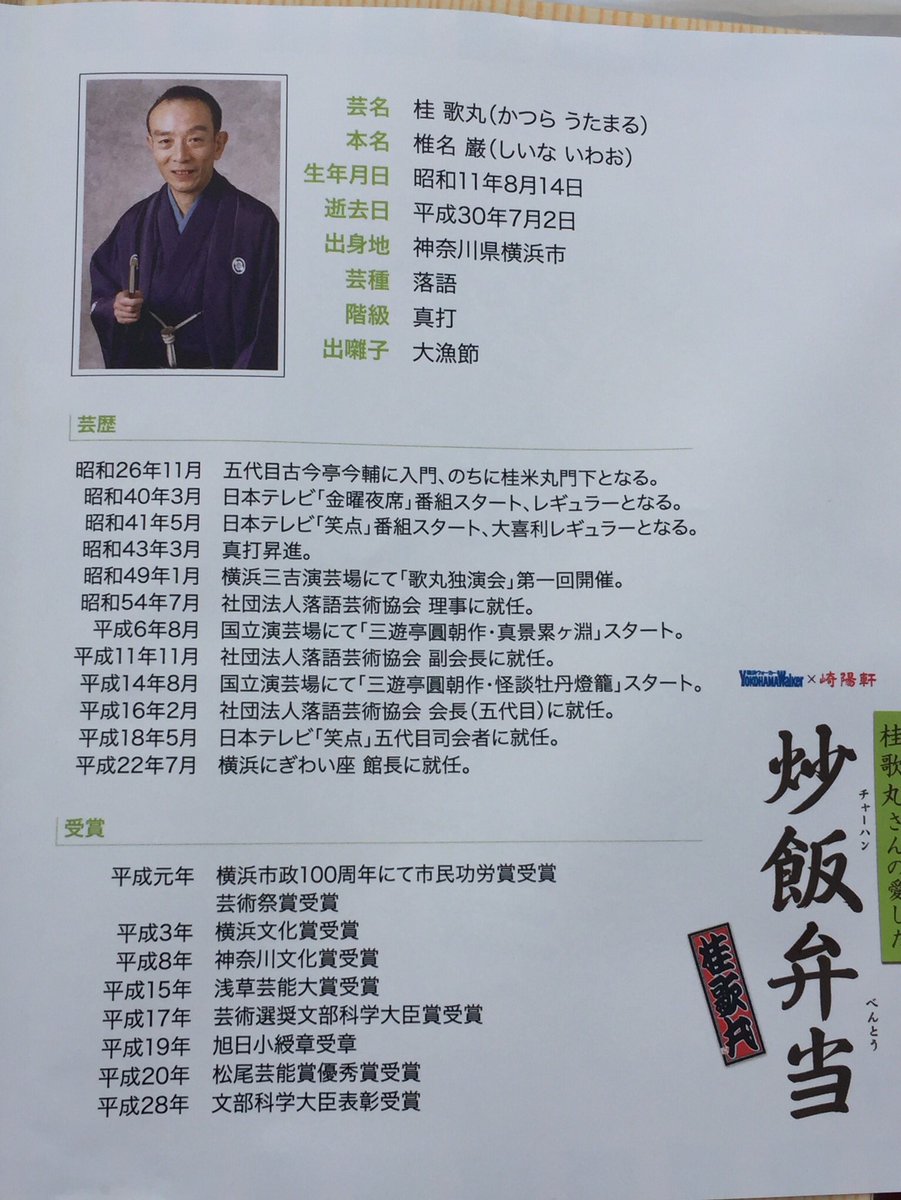 芸名 桂 歌丸(かつら うたまる)
本名 椎名 巌(しいな いわお)
生年月日 昭和11年8月14日
逝去日 平成30年7月2日
出身地 神奈川県横浜市
芸種 落語
階級 真打
出囃子 大漁節
芸歴
昭和26年11月 五代目古今亭今輔に入門、のちに桂米丸門下となる。
昭和40年3月 日本テレビ「金曜夜席」番組スタート、レギュラーとなる。
昭和41年5月 日本テレビ「笑点」番組スタート、大喜利レギュラーとなる。
昭和43年3月 真打昇進。
昭和49年1月 横浜三吉演芸場にて「歌丸独演会」第一回開催。
昭和54年7月 社団法人落語芸術協会 理事に就任。
平成6年8月 国立演芸場にて「三遊亭圓朝作・真景累ヶ淵」スタート。
平成11年11月 社団法人落語芸術協会 副会長に就任。
平成14年8月 国立演芸場にて「三遊亭圓朝作・怪談牡丹燈籠」スタート。
平成16年2月 社団法人落語芸術協会 会長(五代目)に就任。
平成18年5月 日本テレビ「笑点」五代目司会者に就任。
平成22年7月 横浜にぎわい座 館長に就任。
受賞
平成元年 横浜市政100周年にて市民功労賞受賞
芸術祭賞受賞
平成3年 横浜文化賞受賞
平成8年 神奈川文化賞受賞
平成15年 浅草芸能大賞受賞
平成17年 芸術選奨文部科学大臣賞受賞
平成19年 旭日小綬章受章
平成20年 松尾芸能賞優秀賞受賞
平成28年 文部科学大臣表彰受賞
横浜ウォーカー
YOKOHAMA Walker×崎陽軒
桂歌丸さんの愛した
炒飯弁当
チャーハン
べんとう
桂歌丸